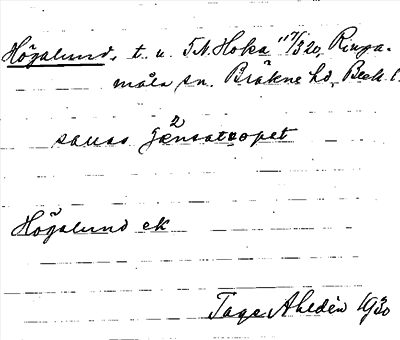 Högalund, t. u. 5 N. Hoka 117/320, Ringa-
måla sn. Bräkne hd, Blek. l.
2
sauas Jänsatorpet
Högalund ek
Tage Ahldén 1930